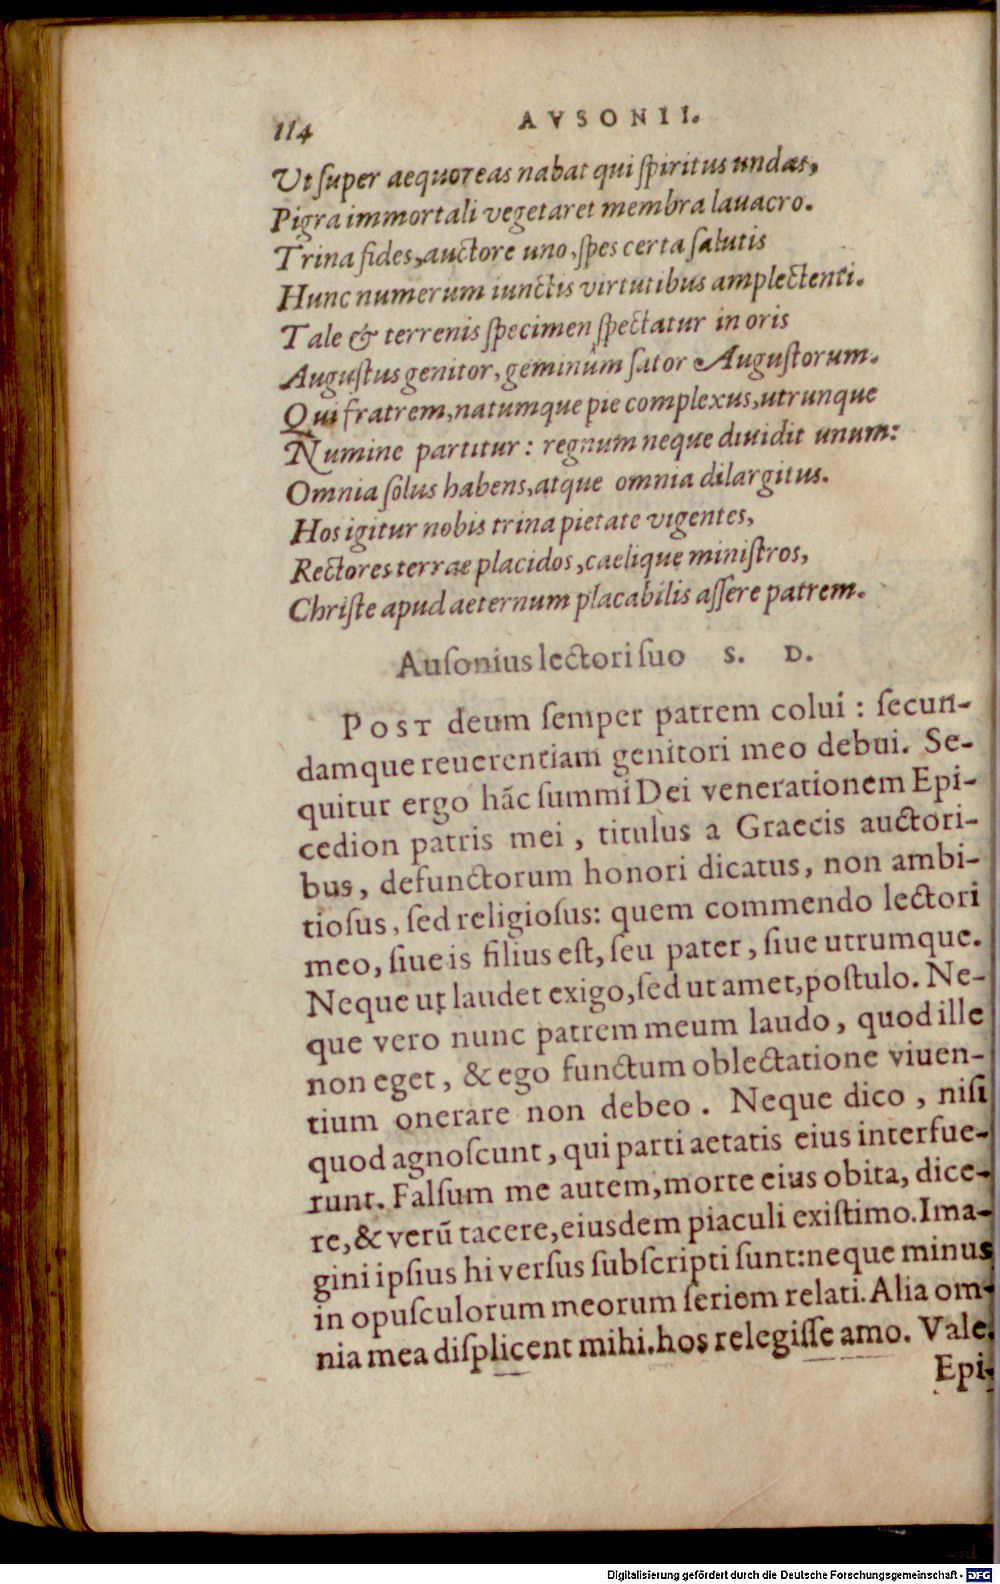 114 AVSONII.
Ut ſuper aequoreas nabat qui ſpiritus undas,
Pigra immortali vegetaret membra lavacro.
Trina fides, auctore uno, ſpes certa ſalutis
Hunc numerum iunctis virtutibus amplectenti.
Tale & terrenis ſpecimen ſpectatur in oris
Auguſtus genitor, geminûm ſator Auguſtorum.
Qui fratrem, natumque pie complexus, utrunque
Numine partitur: regnum neque dividit unum:
Omnia ſolus habens, atque omnia dilargitus.
Hos igitur nobis trina pietate vigentes,
Rectores terrae placidos, caelique miniſtros,
Chriſte apud aeternum placabilis aſſere patrem.
Auſonius lectori ſuo S. D.
POST deum ſemper patrem colui: ſecun-
damque reuerentiam genitori meo debui. Se-
quitur ergo hāc ſummi Dei venerationem Epi-
cedion patris mei, titulus a Graecis auctori-
bus, defunctorum honori dicatus, non ambi-
tioſus, ſed religioſus: quem commendo lectori
meo, ſiue is filius eſt, ſeu pater, ſiue utrumque.
Neque ut laudet exigo, ſed ut amet, poſtulo. Ne-
que vero nunc patrem meum laudo, quod ille
non eget, & ego functum oblectatione viuen-
tium onerare non debeo. Neque dico, niſi
quod agnoſcunt, qui parti aetatis eius interfue-
runt. Falſum me autem, morte eius obita, dice-
re, & verū tacere, eiusdem piaculi exiſtimo. Ima-
gini ipſius hi verſus ſubſcripti ſunt: neque minus
in opuſculorum meorum ſeriem relati. Alia om-
nia mea diſplicent mihi. hos relegiſſe amo. Vale.
Epi-
Digitalisierung gefördert durch die Deutsche Forschungsgemeinschaft - DFG